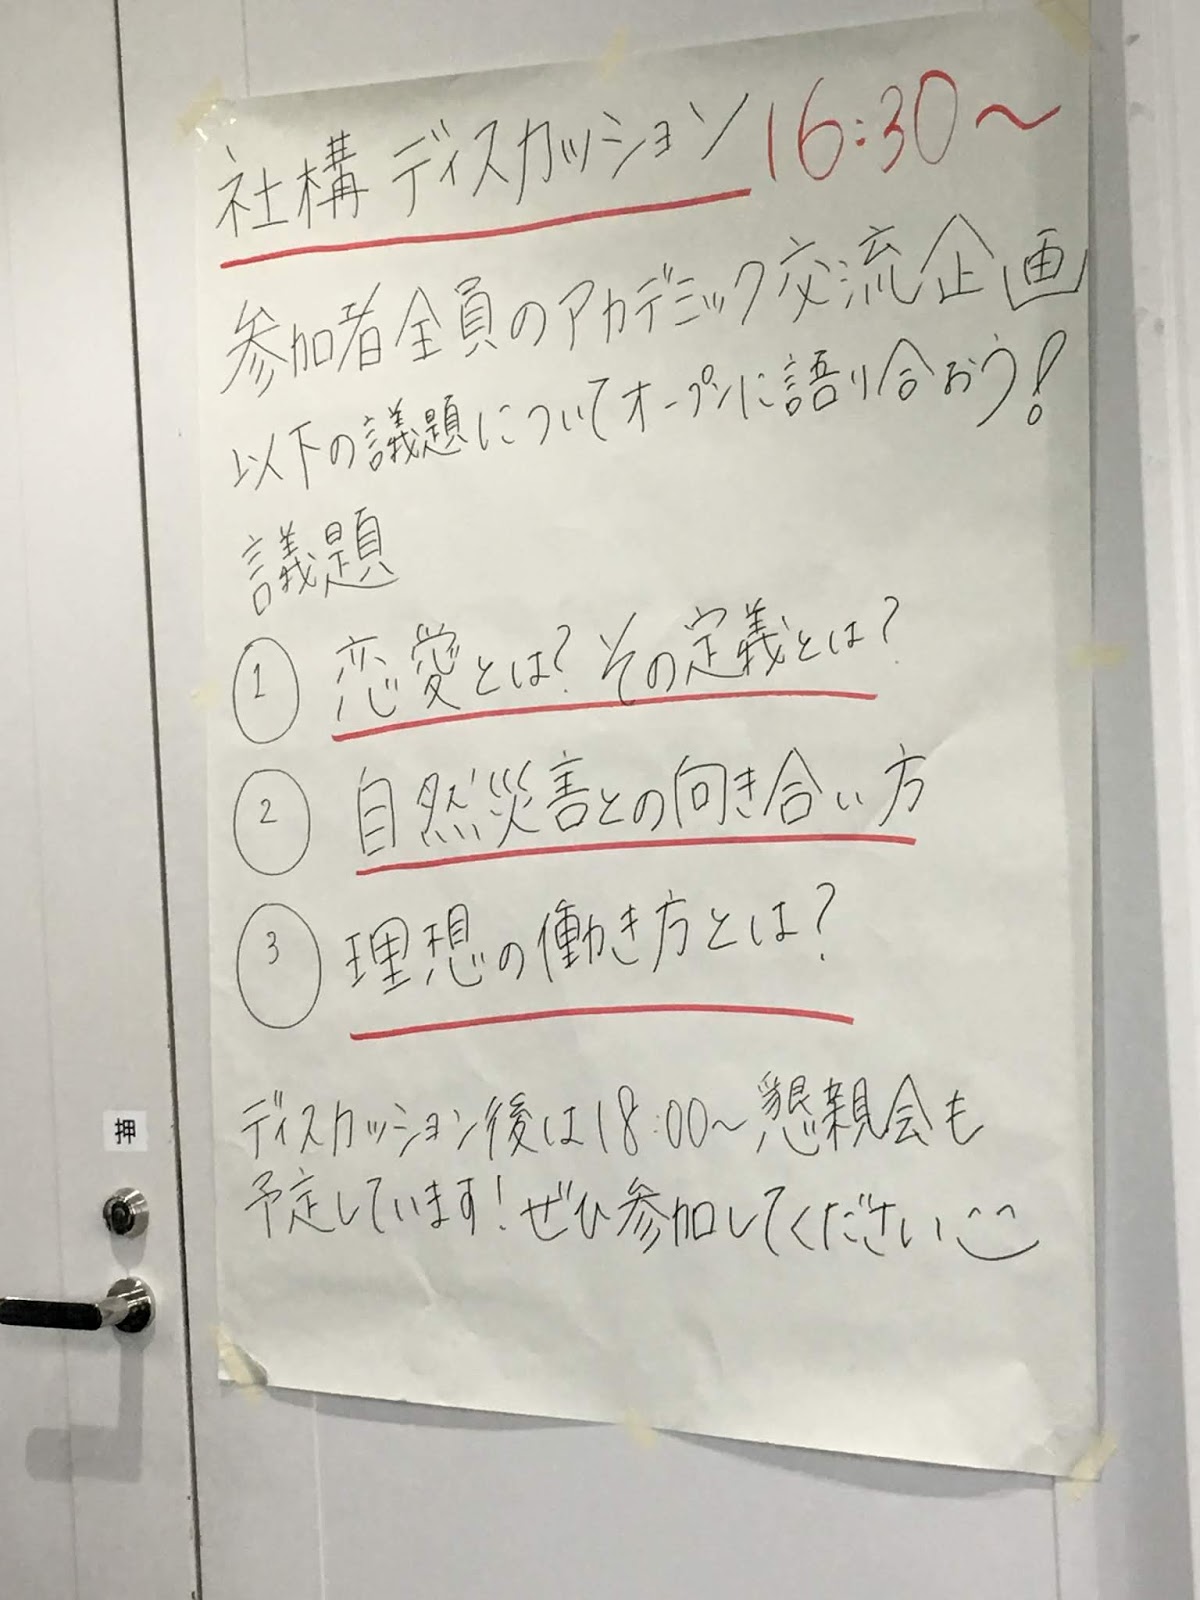 社構 ディスカッション 16:30～
参加者全員のアカデミック交流企画
以下の議題についてオープンに語り合おう!
議題
① 恋愛とは? その定義とは?
② 自然災害との向き合い方
③ 理想の働き方とは?
ディスカッション後は18:00～懇親会も
予定しています! ぜひ参加してください
押